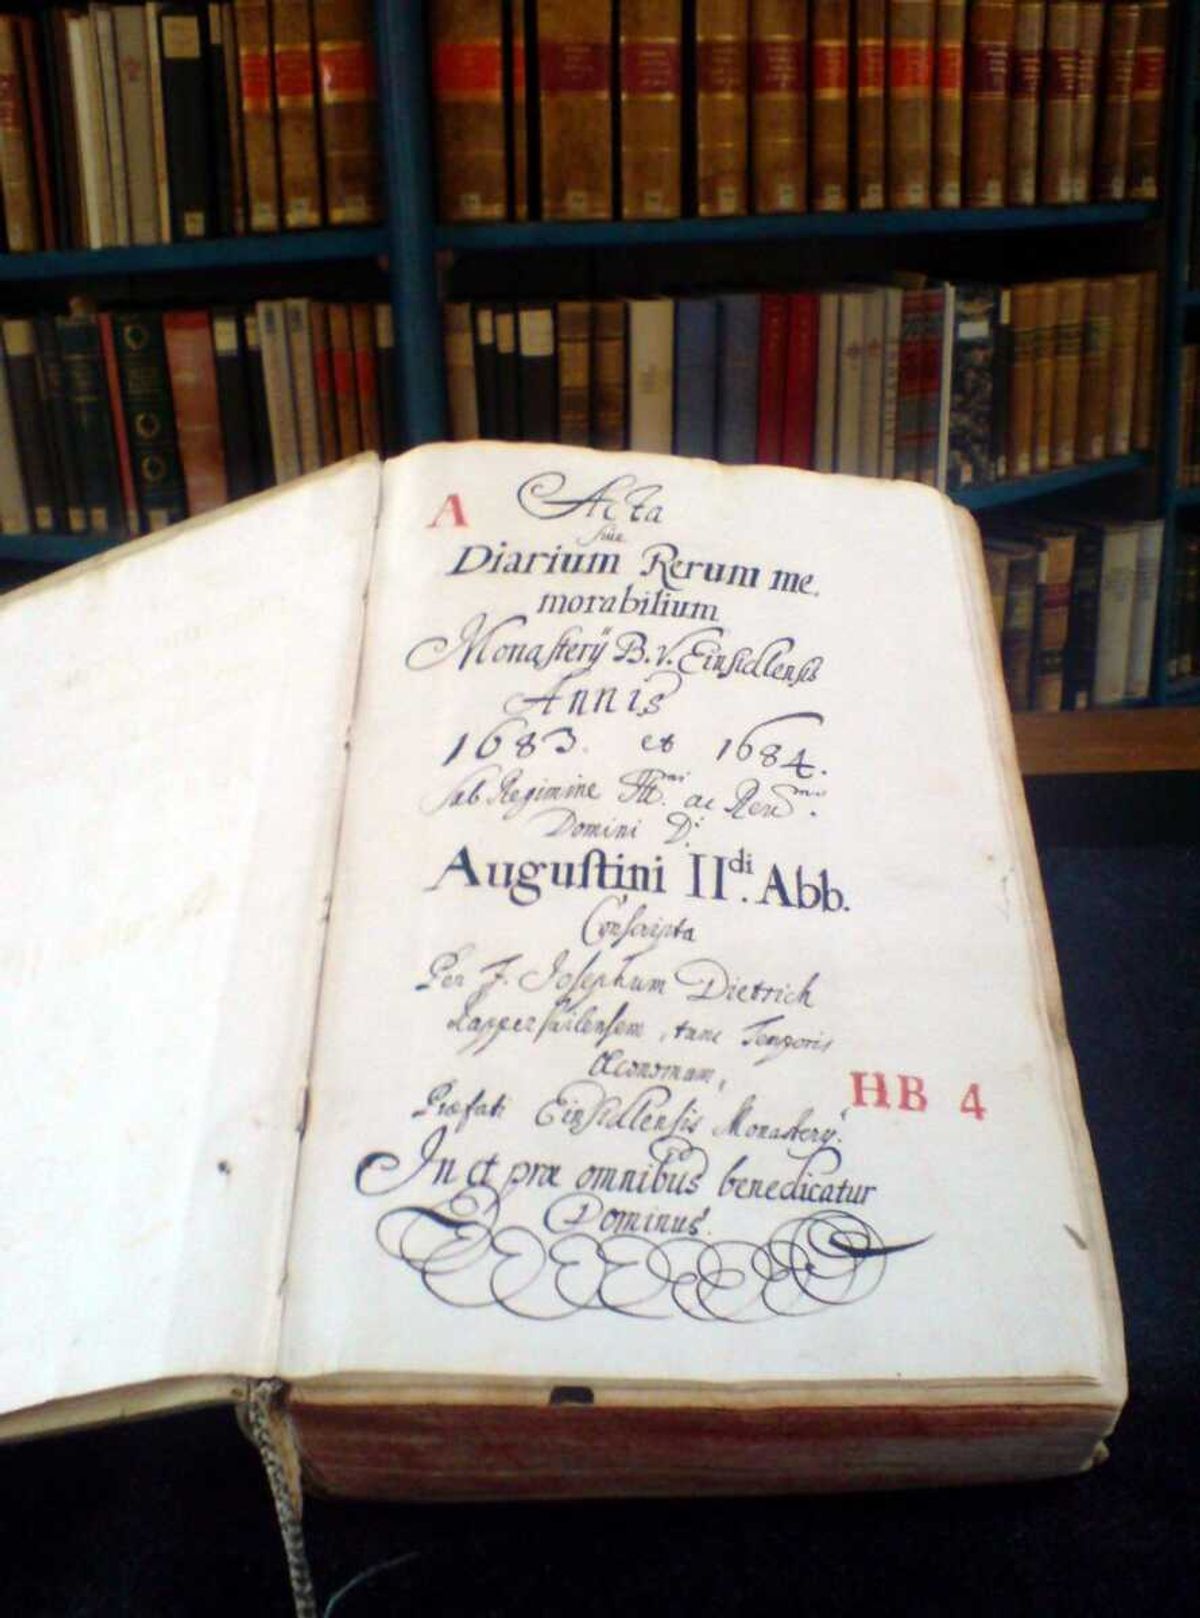 A Acta
siue
Diarium Rerum me.
morabilium
Monasterÿ B.V. Einsidlensis
Annis
1683. et 1684.
Sub Regimine Ill.mi ac Rev.mi
Domini D.
Augustini II.di Abb.
Conscripta
Per F. Josephum Dietrich
Rapperswilensem, tunc Temporis
Œconomum,
HB 4
Præfati Einsidlensis Monasterÿ.
In et præ omnibus benedicatur
Dominus.